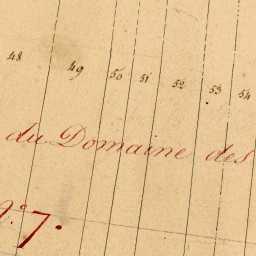 48 49 50 51 52 53 54
du Domaine des
N.° 7.